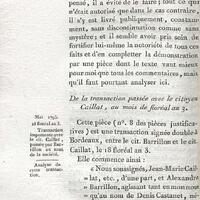 pensé, il a évité de le faire; tout ce
n'était autorisé que dans le cas contraire,
il s'y est livré publiquement, constam-
ment, sans discontinuation, comme sans
mystère; et il semble avoir pris soin de
fortifier lui-même la notoriété de tous ces
faits et d'en compléter la démonstration
par une pièce dont le texte vaut mieux
pour moi que tous les commentaires, mais
qu'il faut pourtant analyser ici.
De la transaction passée avec le citoyen
Caillat, au mois de floréal an 3.
Mai 1795.
18 floréal an 3.
Transaction
importante avec
le cit. Caillat;
passée par Bar-
rillon au nom
de la société.
Analyse de
cette transac-
tion.
Cette pièce (n°. 8 des pièces justifi-
catives) est une transaction signée double à
Bordeaux, entre le cit. Barrillon et le cit.
Caillat, le 18 floréal an 3.
Elle commence ainsi :
« Nous soussignés, Jean-Marie Cail-
» lat, etc., d'une part, et Alexandre
» Barrillon, agissant tant en mon nom
» qu'au nom de Denis Castanet, né-